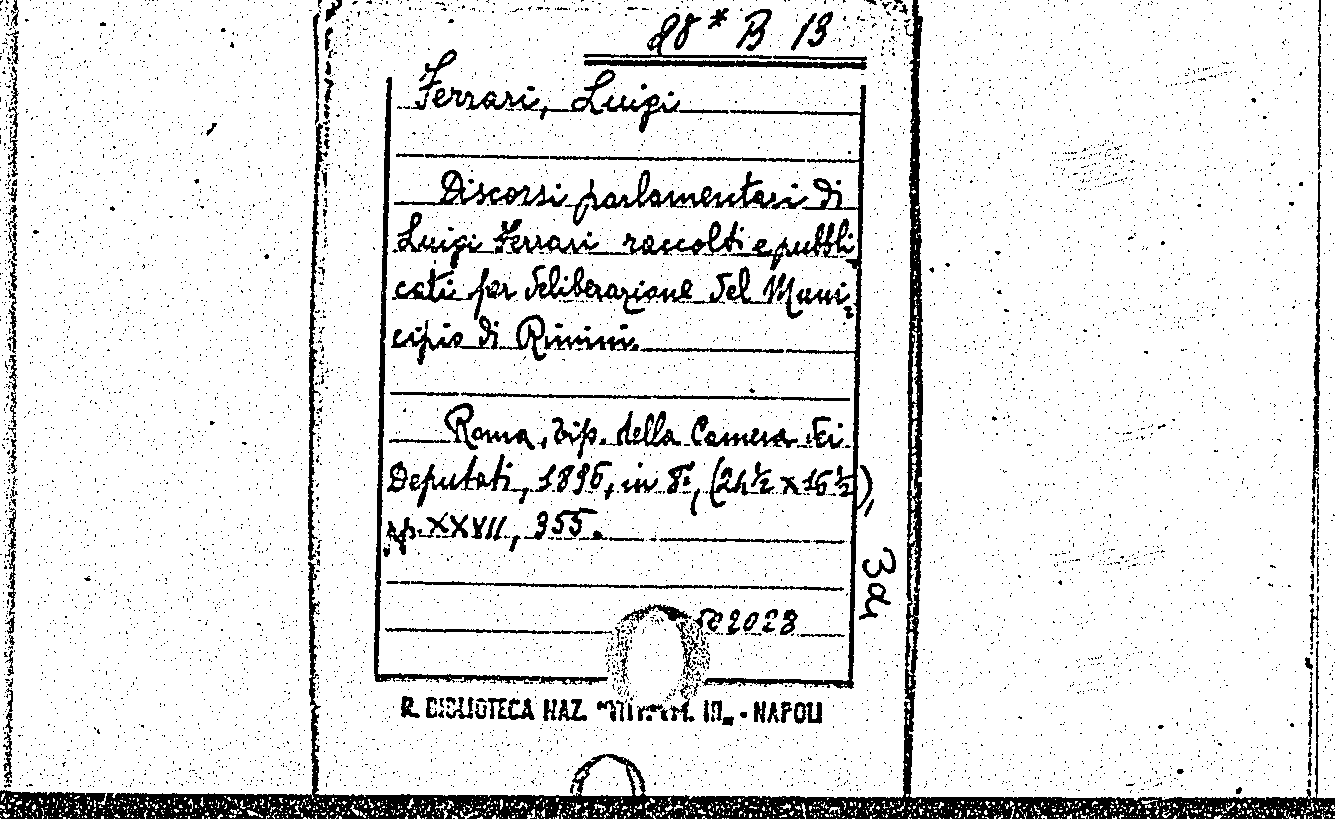 B 13
Ferrari, Luigi
Discorsi parlamentari di
Luigi Ferrari raccolti e pubbli
cati per deliberazione del Muni
cipio di Rimini.
Roma, tip. della Camera dei
Deputati, 1896, in 8°, (24½ x 16½),
pp. XXVII, 355.
2028
R. BIBLIOTECA NAZ. III„ - NAPOLI